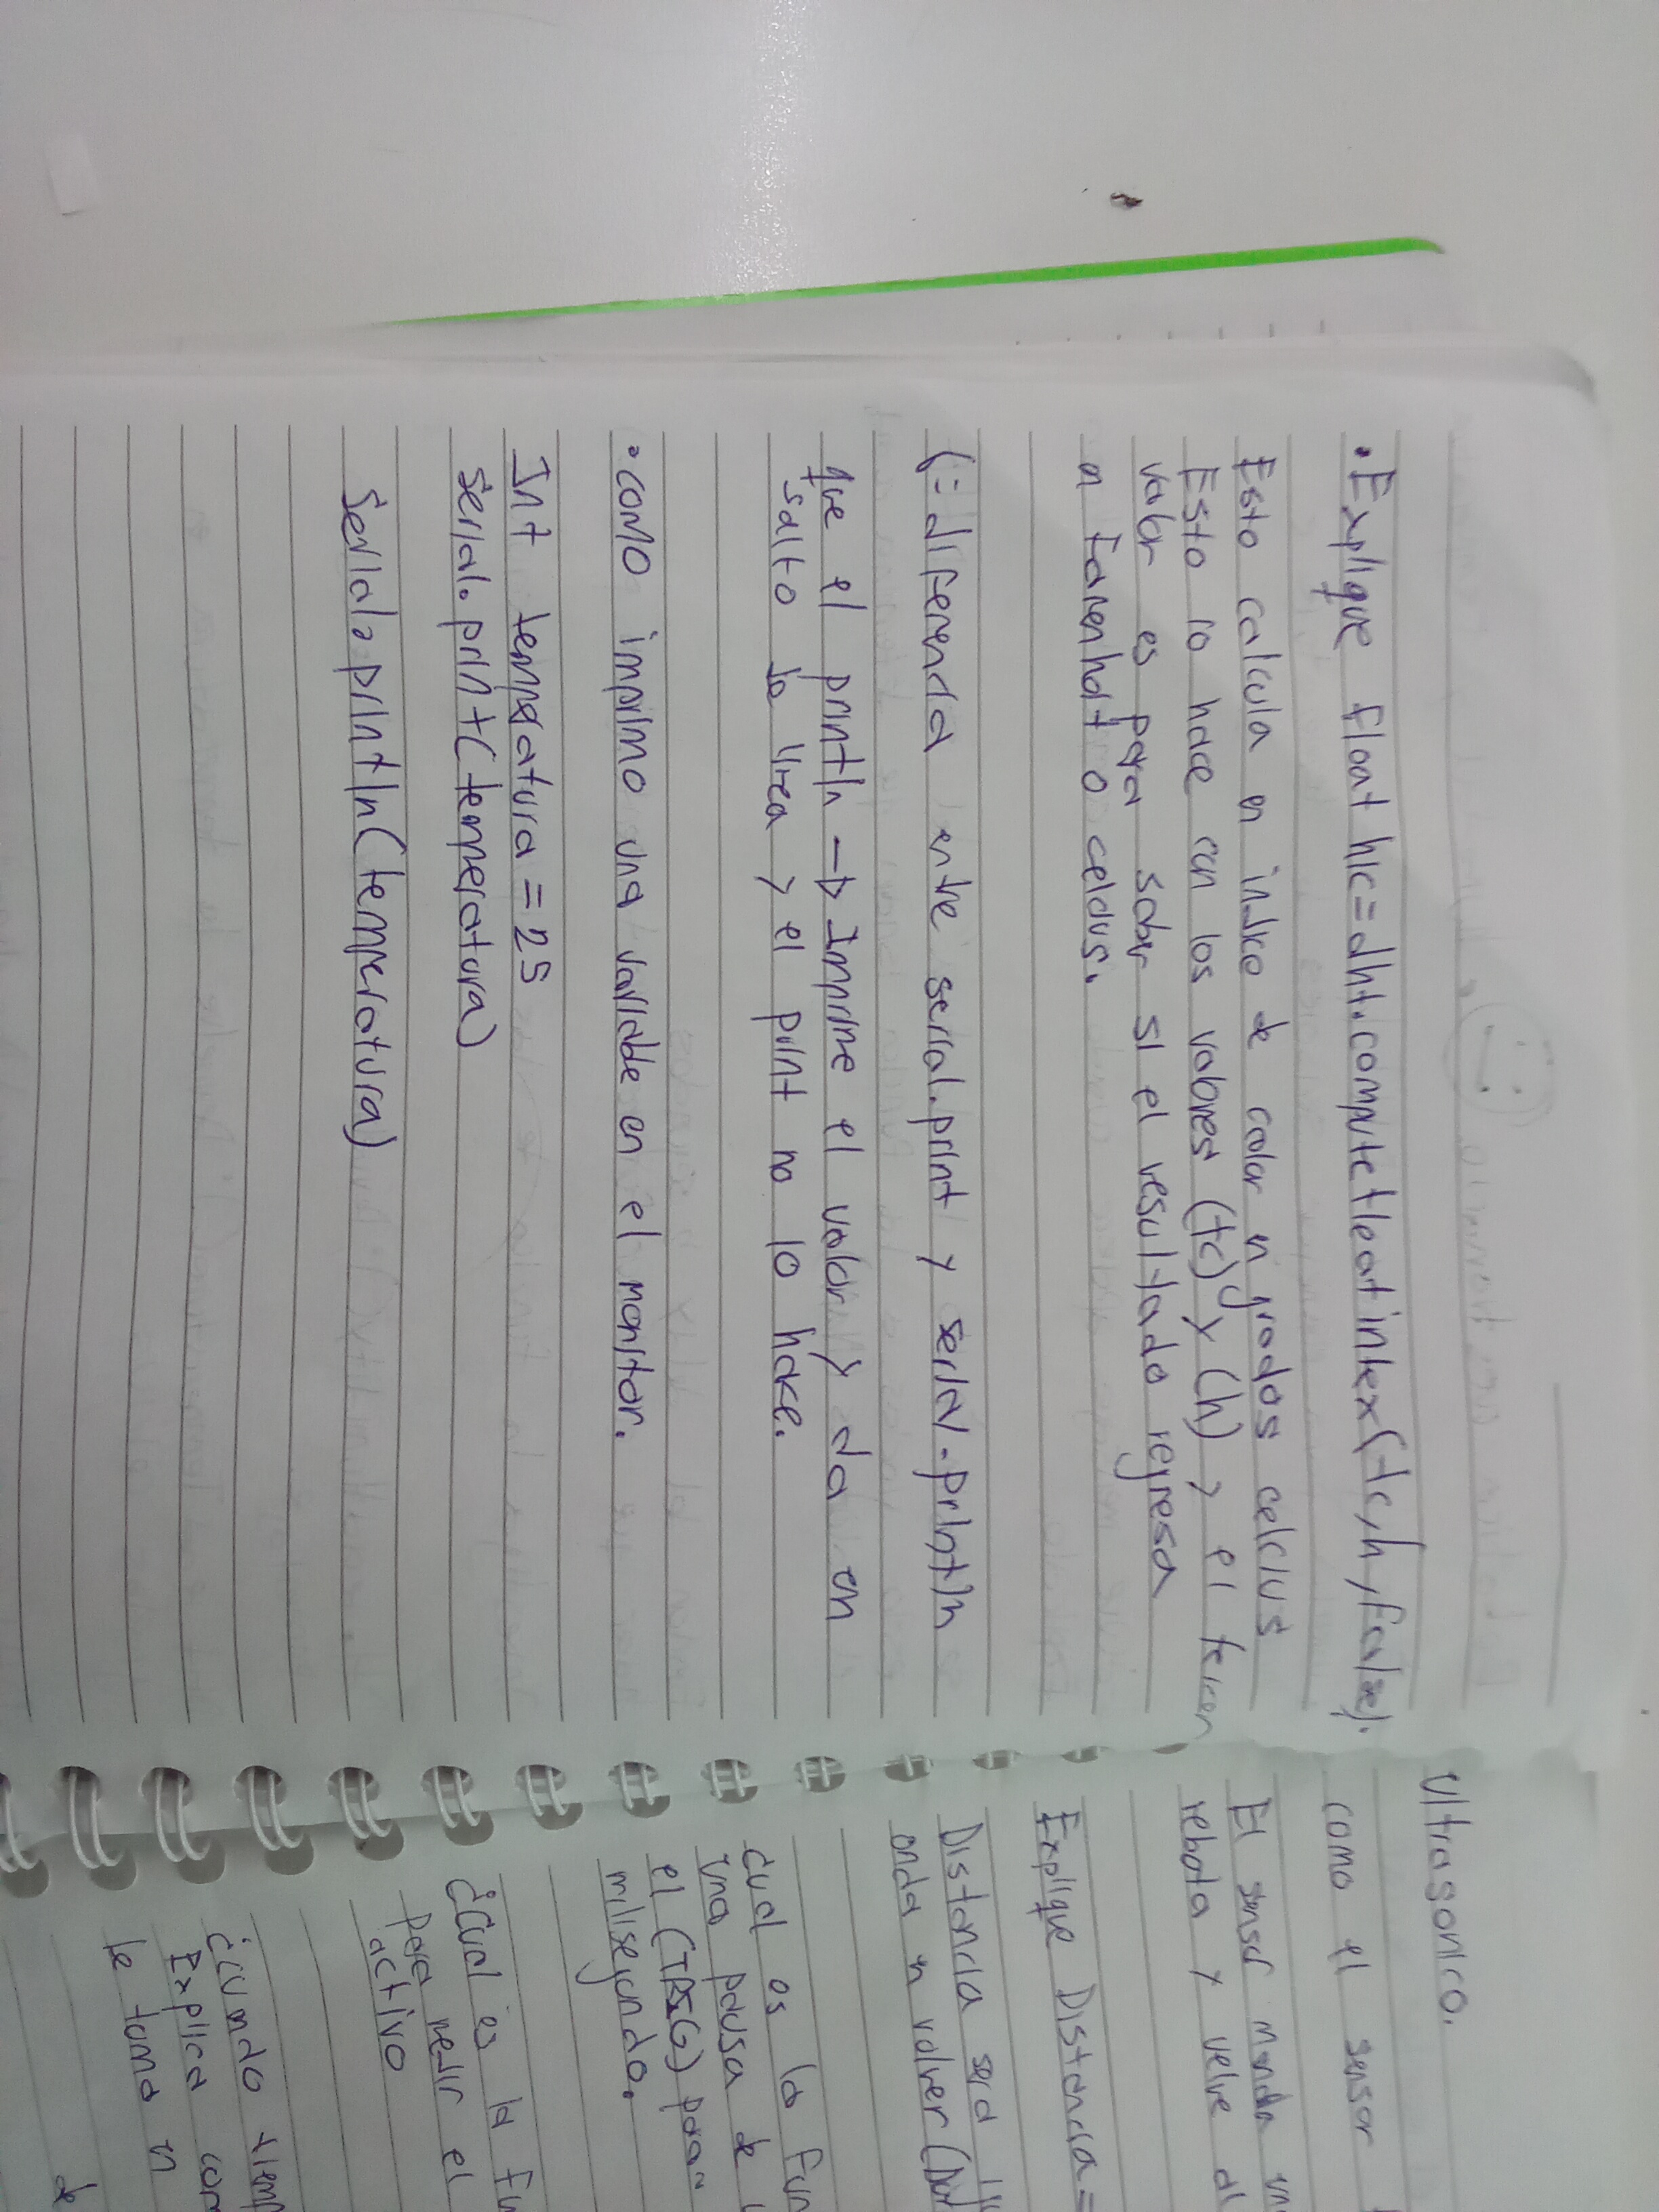 • Explique float hic = dht.computetleatintex(tc, h, False).
Esto calcula en indice de calor en grados celcius
Esto lo hace con los valores (tc) y (h) y el tercer
valor es para saber si el resultado regresa
en Farenhait o celcius.
(: diferencia entre serial.print y serial.println
que el println → Imprime el valor y da un
salto de linea y el print no lo hace.
• como imprimo una variable en el monitor.
Int temperatura = 25
Serial.print(temperatura)
Serial.println(temperatura)
Ultrasonico.
como el sensor
El sensor manda una
rebota y velve al
Explique Distancia =
Distancia sera
onda en volver
cual es la fun
una pausa de
el (TRIG) para
milisegundo.
¿Cual es la fu
para medir el
activo
¿cuando tiemp
Explica com
le toma en
de